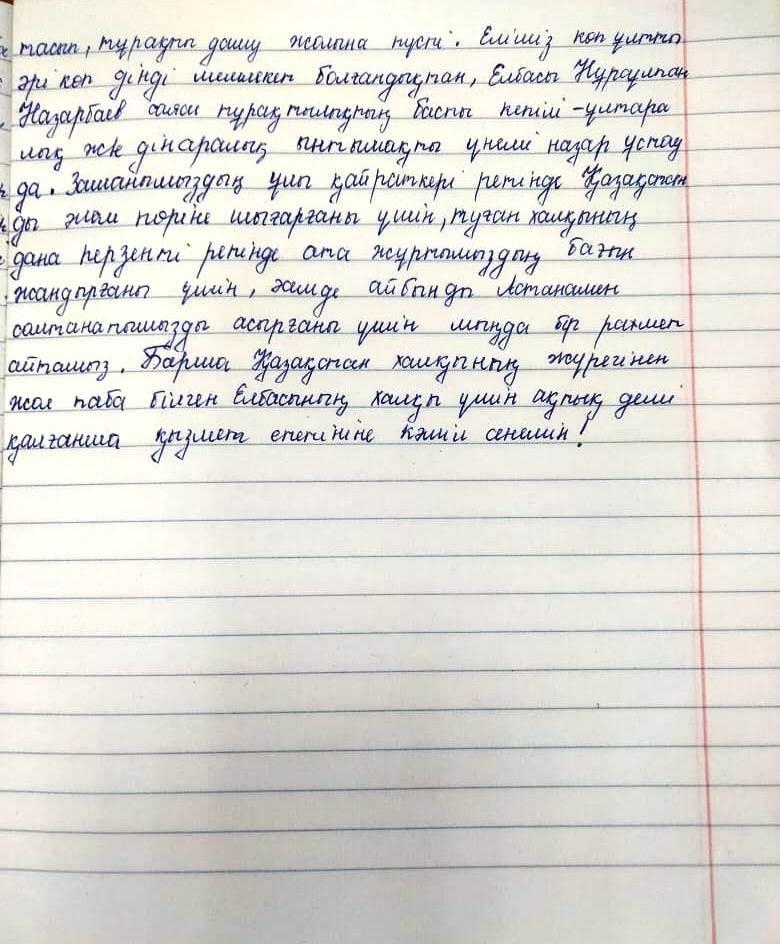 тасып, тұрақты даму жолына түсті. Еліміз көп ұлтты
әрі көп дінді мемлекет болғандықтан, Елбасы Нұрсұлтан
Назарбаев саяси тұрақтылықтың басты кепілі -ұлтара
лық жк дінаралық ынтымақты үнемі назар ұстау
да. Заманымыздың ұлы қайраткері ретінде Қазақстан
ды әлем төріне шығарғаны үшін, туған халқының
дана перзенті ретінде ата жұртымыздың бағын
жандырғаны үшін, һәмде айбынды Астанамен
салтанатымызды асырғаны үшін мыңда бір рахмет
айтамыз. Барша Қазақстан халқының жүрегінен
жол таба білген Елбасының халқы үшін ақтық демі
қалғанша қызмет ететініне кәміл сенемін!